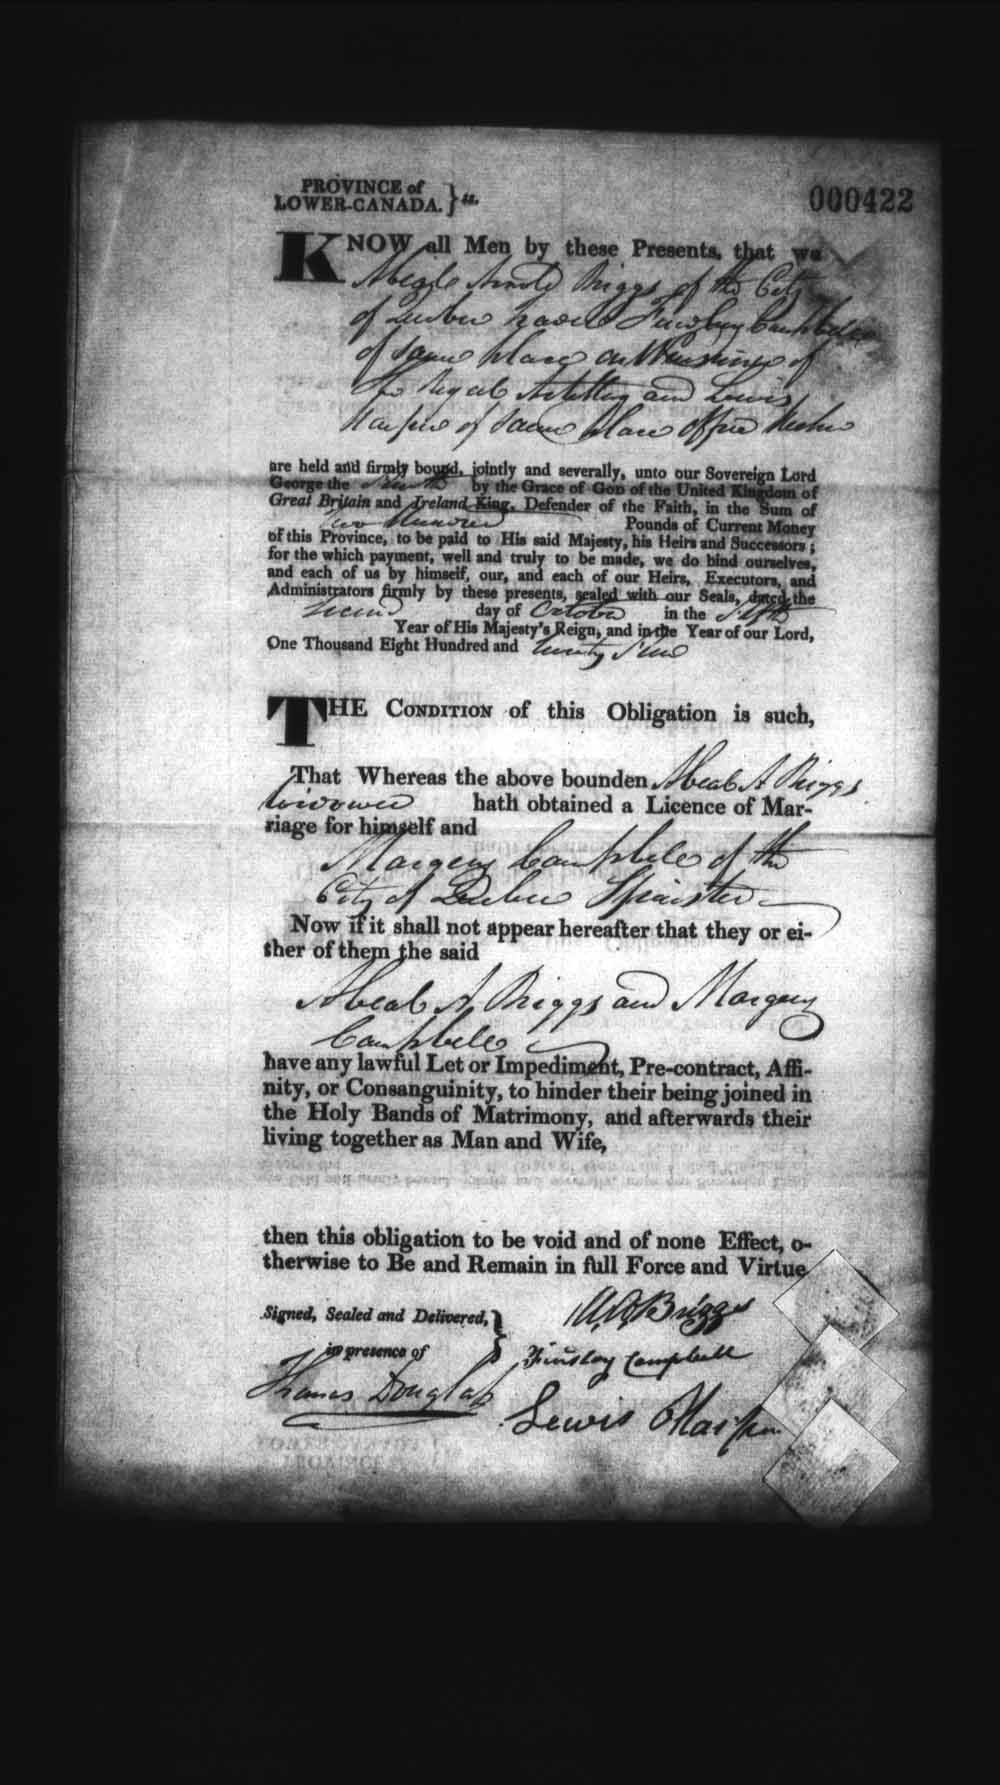 PROVINCE of
LOWER-CANADA. } ss.
000422
KNOW all Men by these Presents, that we
Arnold Briggs of the City
of Quebec Campbell
of same place of
the Royal Artillery and Lewis
Harper of same place
are held and firmly bound, jointly and severally, unto our Sovereign Lord
George the Fourth by the Grace of God of the United Kingdom of
Great Britain and Ireland King, Defender of the Faith, in the Sum of
Two Hundred Pounds of Current Money
of this Province, to be paid to His said Majesty, his Heirs and Successors;
for the which payment, well and truly to be made, we do bind ourselves,
and each of us by himself, our, and each of our Heirs, Executors, and
Administrators firmly by these presents, sealed with our Seals, dated the
day of October in the
Year of His Majesty's Reign, and in the Year of our Lord,
One Thousand Eight Hundred and twenty
THE CONDITION of this Obligation is such,
That Whereas the above bounden A Briggs
widower hath obtained a Licence of Mar-
riage for himself and
Margery Campbell of the
City of Quebec Spinster
Now if it shall not appear hereafter that they or ei-
ther of them the said
A Briggs and Margery
Campbell
have any lawful Let or Impediment, Pre-contract, Affi-
nity, or Consanguinity, to hinder their being joined in
the Holy Bands of Matrimony, and afterwards their
living together as Man and Wife,
then this obligation to be void and of none Effect, o-
therwise to Be and Remain in full Force and Virtue
Signed, Sealed and Delivered, }
in presence of
A. A. Briggs
Finslay Campbell
Thomas Douglas
Lewis Harper